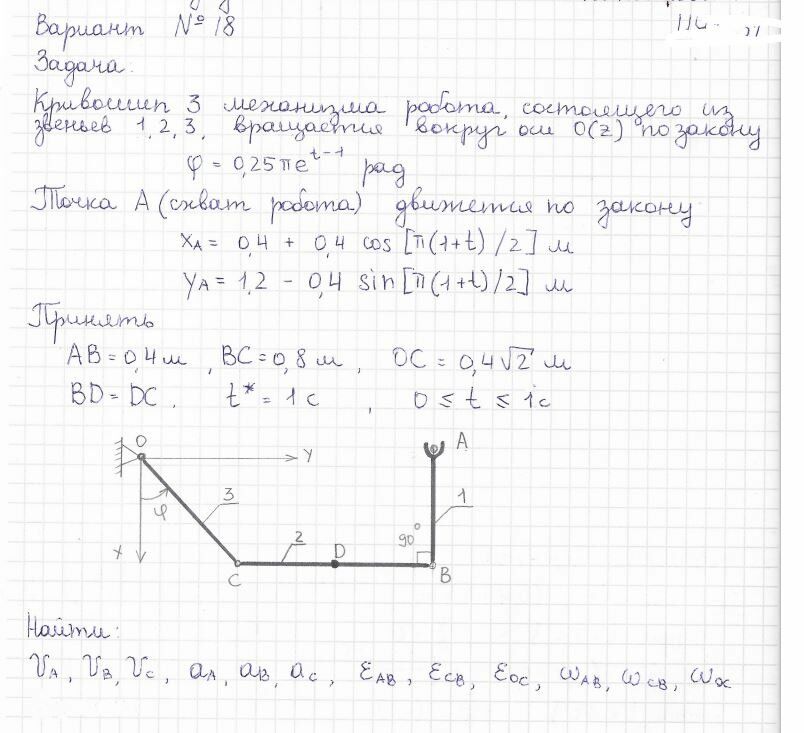 Вариант № 18
Задача.
Кривошип 3 механизма робота, состоящего из
звеньев 1, 2, 3, вращается вокруг оси O(z) по закону
φ = 0,25πe^(t-1) рад
Точка A (схват робота) движется по закону
xA = 0,4 + 0,4 cos [π(1+t)/2] м
yA = 1,2 - 0,4 sin [π(1+t)/2] м
Принять
AB = 0,4 м, BC = 0,8 м, OC = 0,4√2 м
BD = DC. t* = 1 c, 0 ≤ t ≤ 1c
O
y
A
φ
3
1
x
2
D
90°
C
B
Найти:
VA, VB, VC, aA, aB, aC, εAB, εCB, εOC, ωAB, ωCB, ωOC